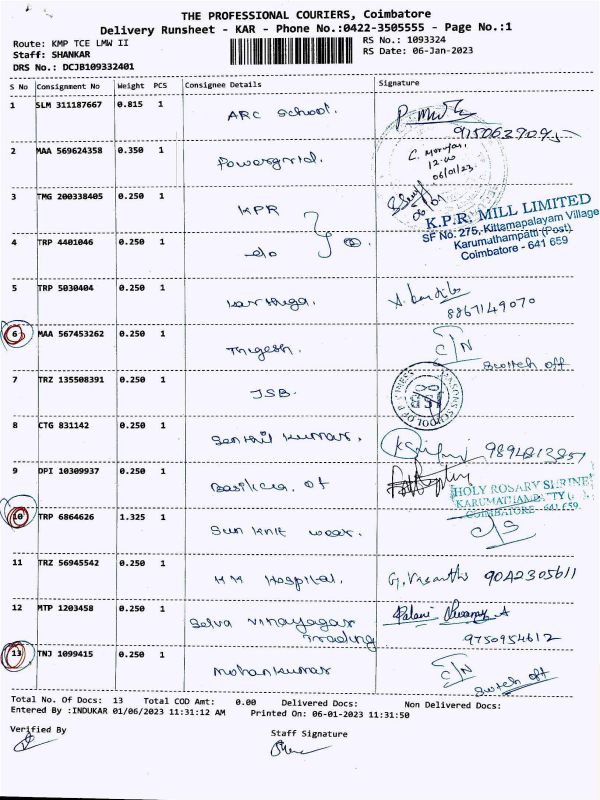 THE PROFESSIONAL COURIERS, Coimbatore
Delivery Runsheet - KAR - Phone No.:0422-3505555 - Page No.:1
Route: KMP TCE LMW II
RS No.: 1093324
Staff: SHANKAR
RS Date: 06-Jan-2023
DRS No.: DCJB109332401
S No Consignment No Weight PCS Consignee Details Signature
1 SLM 311187667 0.815 1 ARC School.
2 MAA 569624358 0.350 1 Powergrid.
12.00
06/01/23
3 TMG 200338405 0.250 1 KPR
K.P.R. MILL LIMITED
SF No: 275, Kittampalayam Village
Karumathampatti (Post)
Coimbatore - 641 659
4 TRP 4401046 0.250 1 do
5 TRP 5030404 0.250 1 Karthiga.
8867149070
6 MAA 567453262 0.250 1 Thigesh.
C/N
Switch off
7 TRZ 135508391 0.250 1 JSB.
JSB
8 CTG 831142 0.250 1 Senthil Kumar.
9 DPI 10309937 0.250 1 Basilica of
HOLY ROSARY SHRINE
10 TRP 6864626 1.325 1 Sun Knit wear.
11 TRZ 56945542 0.250 1 MM Hospital. G. Vasantha 9042305611
12 MTP 1203458 0.250 1 Selva Vinayagar
Trading
9750954612
13 TNJ 1099415 0.250 1 Mohankumar
C/N
Switch off
Total No. Of Docs: 13 Total COD Amt: 0.00 Delivered Docs: Non Delivered Docs:
Entered By :INDUKAR 01/06/2023 11:31:12 AM Printed On: 06-01-2023 11:31:50
Verified By
Staff Signature